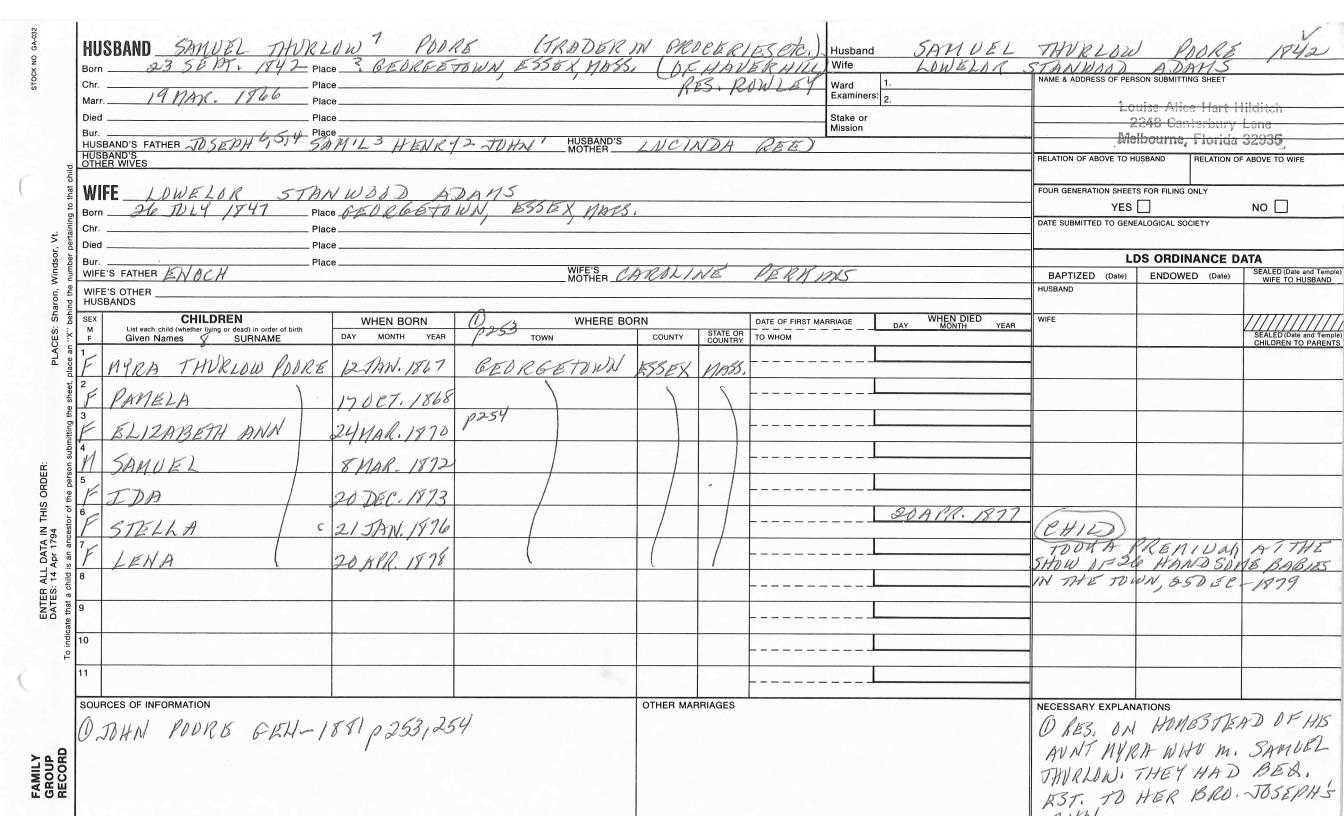 STOCK NO. GA-032
HUSBAND SAMUEL THURLOW 7 POORE (TRADER IN GROCERIES etc.)
Born 23 SEPT. 1842 Place ? GEORGETOWN, ESSEX, MASS. (OF HAVERHILL
Chr. Place RES. ROWLEY
Marr. 19 MAR. 1866 Place
Died Place
Bur. Place
HUSBAND'S FATHER JOSEPH 6,5,4 SAM'L 3 HENRY 2 JOHN 1 HUSBAND'S MOTHER LUCINDA REED
HUSBAND'S OTHER WIVES
Husband SAMUEL THURLOW POORE 1842
Wife LOWELOR STANWOOD ADAMS
Ward Examiners: 1.
2.
Stake or Mission
NAME & ADDRESS OF PERSON SUBMITTING SHEET
Louise Alice Hart Hilditch
2248 Canterbury Lane
Melbourne, Florida 32935
RELATION OF ABOVE TO HUSBAND RELATION OF ABOVE TO WIFE
FOUR GENERATION SHEETS FOR FILING ONLY
YES NO
DATE SUBMITTED TO GENEALOGICAL SOCIETY
WIFE LOWELOR STANWOOD ADAMS
Born 26 JULY 1847 Place GEORGETOWN, ESSEX, MASS.
Chr. Place
Died Place
Bur. Place
WIFE'S FATHER ENOCH WIFE'S MOTHER CAROLINE PERKINS
WIFE'S OTHER HUSBANDS
LDS ORDINANCE DATA
BAPTIZED (Date) ENDOWED (Date) SEALED (Date and Temple) WIFE TO HUSBAND
HUSBAND
WIFE
SEALED (Date and Temple) CHILDREN TO PARENTS
SEX M F CHILDREN WHEN BORN ① p253 WHERE BORN DATE OF FIRST MARRIAGE WHEN DIED
List each child (whether living or dead) in order of birth
Given Names 8 SURNAME DAY MONTH YEAR TOWN COUNTY STATE OR COUNTRY TO WHOM DAY MONTH YEAR
1 F MYRA THURLOW POORE 12 JAN. 1867 GEORGETOWN ESSEX MASS.
2 F PAMELA 17 OCT. 1868
3 F ELIZABETH ANN 24 MAR. 1870 p254
4 M SAMUEL 8 MAR. 1872
5 F IDA 20 DEC. 1873
6 F STELLA c 21 JAN. 1876 20 APR. 1877 CHILD
7 F LENA 20 APR. 1878 TOOK A PREMIUM AT THE
SHOW OF 26 HANDSOME BABIES
8 IN THE TOWN, 25 DEC-1879
9
10
11
SOURCES OF INFORMATION
① JOHN POORE GEN-1881 p253,254
OTHER MARRIAGES
NECESSARY EXPLANATIONS
① RES. ON HOMESTEAD OF HIS
AUNT MYRA WHO m. SAMUEL
THURLOW. THEY HAD BEQ.
EST. TO HER BRO. JOSEPH'S
PLACES: Sharon, Windsor, Vt.
ENTER ALL DATA IN THIS ORDER:
DATES: 14 Apr 1794
To indicate that a child is an ancestor of the person submitting the sheet, place an "X" behind the number pertaining to that child.
FAMILY GROUP RECORD